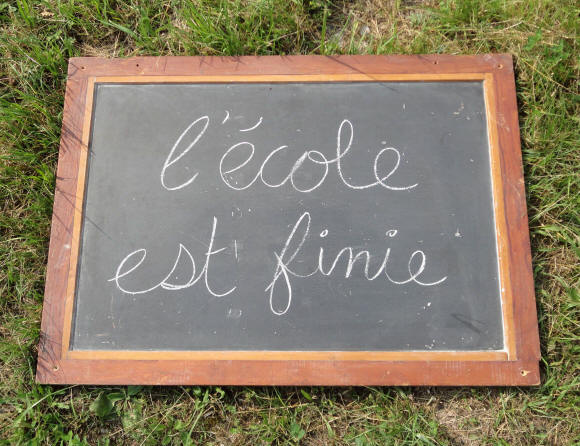 l'école
est finie